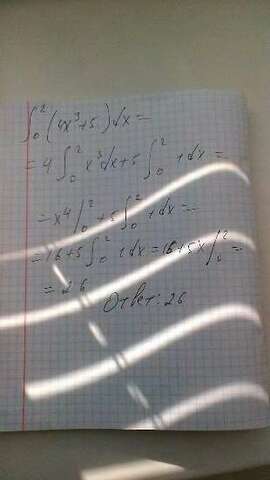 ∫₀² (4x³+5) dx =
= 4 ∫₀² x³dx + 5 ∫₀² 1dx =
= x⁴|₀² + 5 ∫₀² 1dx =
= 16+5 ∫₀² 1dx = 16+5x|₀² =
= 26
Ответ: 26